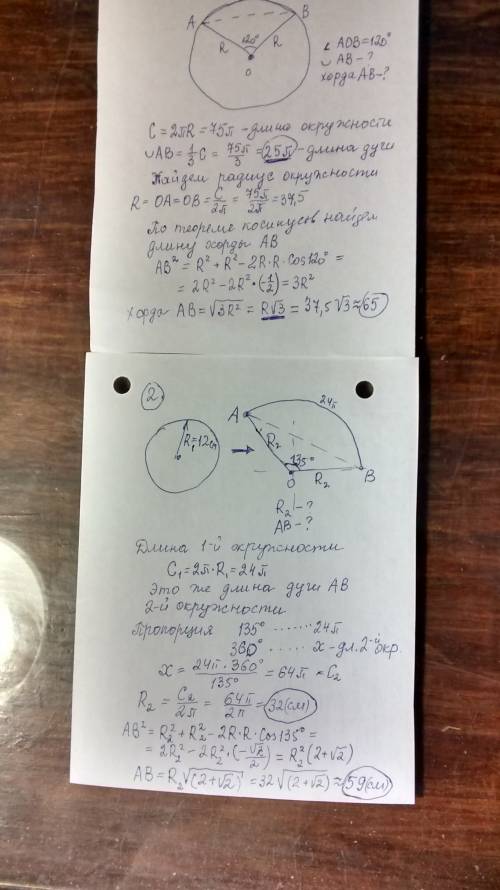 A B
120°
R R
O
∠ AOB = 120°
◡ AB - ?
хорда AB - ?
C = 2πR = 75π - длина окружности
◡AB = 1/3 C = 75π/3 = 25π - длина дуги
Найдем радиус окружности
R = OA = OB = C/2π = 75π/2π = 37,5
По теореме косинусов найдем
длину хорды AB
AB² = R² + R² - 2R·R·cos120° =
= 2R² - 2R²·(-1/2) = 3R²
хорда AB = √3R² = R√3 = 37,5√3 ≈ 65
2.
R₁=12см
A 24π
R₂ 135°
O R₂ B
R₂ - ?
AB - ?
Длина 1-й окружности
C₁ = 2π·R₁ = 24π
Это же длина дуги AB
2-й окружности
Пропорция 135° ······· 24π
360° ····· x - дл. 2-й окр.
X = 24π·360°/135° = 64π = C₂
R₂ = C₂/2π = 64π/2π = 32(см)
AB² = R₂² + R₂² - 2R·R·cos135° =
= 2R₂² - 2R₂²·(-√2/2) = R₂²(2+√2)
AB = R₂√(2+√2) = 32√(2+√2) ≈ 59(см)